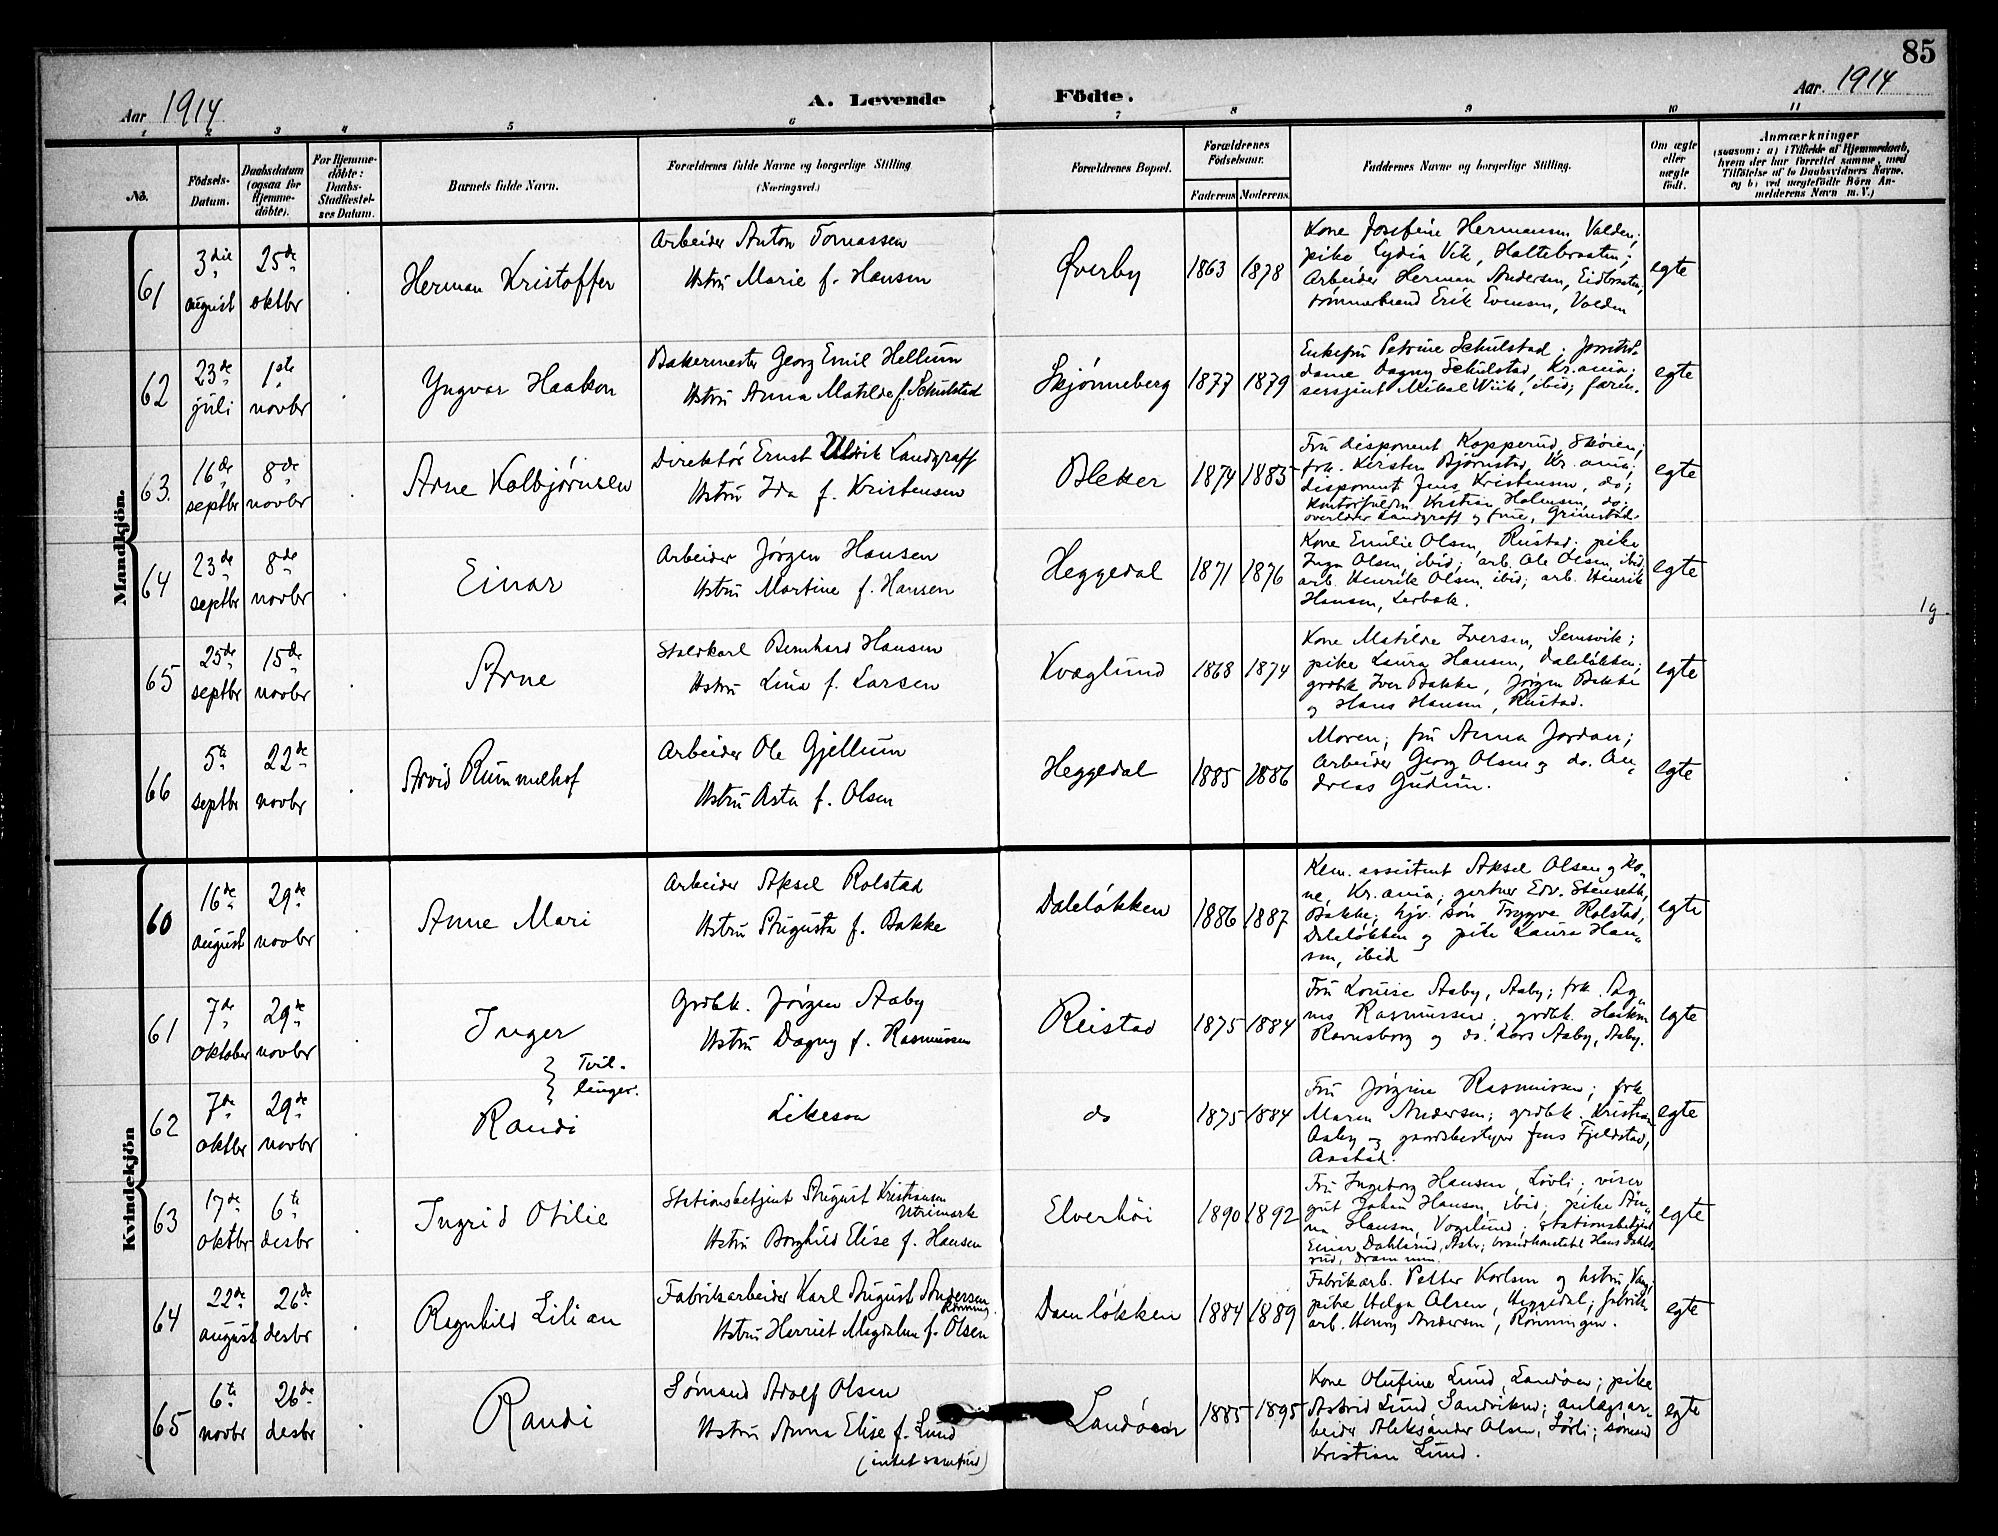 85
Aar 1914
A. Levende Födte.
Aar. 1914
1 2 3 4 5 6 7 8 9 10 11
No.
Födsels-
Datum.
Daabsdatum
(ogsaa for
Hjemme-
döbte).
For Hjemme-
döbte:
Daabs-
Stadfæstel-
ses Datum.
Barnets fulde Navn.
Forældrenes fulde Navne og borgerlige Stilling.
(Næringsvei.)
Forældrenes Bopæl.
Forældrenes
Födselsaar.
Faderens
Moderens
Faddernes Navne og borgerlige Stilling.
Om ægte
eller
uægte
födt.
Anmærkninger
(saasom: a) i Tilfælde af Hjemmedaab,
hvem der har forrettet samme, med
Tilföielse af to Daabsvidners Navne.
og b) ved uægtefödte Börn An-
melderens Navn m. V.)
Mandkjön.
61
3die
august
25de
oktbr
Herman Kristoffer
Arbeider Anton Tomassen
Hstru Marie f. Hansen
Øverby
1863
1878
Kone Josefine Hermansen Valden;
pike Lydia Vik, Haltebraaten;
Arbeider Herman Andersen, Eidbraaten,
tömmerbrand Erik Evensen, Valden
egte
62
23de
juli
1ste
novbr
Yngvar Haakon
Bakermester Georg Emil Hellum
Hstru Anna Matilde f. Schulstad
Skjönneberg
1877
1879
Enkefru Petrine Schulstad;
dame Dagny Schulstad, Kr.ania;
sersjent Mikal Wiik, ibid; faren.
egte
63.
16de
septbr
8de
novbr
Arne Kolbjørnsen
Direktör Ernst Ulrik Landgraff
Hstru Ida f. Kristensen
Bleker
1874
1885
Fru disponent Kopperud, Skøien;
frk. Kirsten Björnstad, Kr.ania;
disponent Jens Kristensen, do;
Kontorfuldm. Kristian Holmsen, do;
overlærer Landgraff og frue, Grimstad.
egte
64
23de
septbr
8de
novbr
Einar
Arbeider Jörgen Hansen
Hstru Martine f. Hansen
Heggedal
1871
1876
Kone Emilie Olsen, Rustad; pike
Inga Olsen, ibid; arb. Ole Olsen, ibid;
arb. Henrik Olsen, ibid; arb. Henrik
Hansen, Lerbæk.
egte
1g.
65
25de
septbr
15de
novbr
Arne
Staldkarl Bernhard Hansen
Hstru Lina f. Larsen
Kvaglund
1868
1874
Kone Matilde Iversen, Semsvik;
pike Laura Hansen, Daleløkken;
grdbk Iver Bakke, Jörgen Bakke
og Hans Hansen, Rustad.
egte
66
5te
septbr
22de
novbr
Arvid Rummelhof
Arbeider Ole Gjellum
Hstru Asta f. Olsen
Heggedal
1885
1886
Moren; fru Anna Jordan;
Arbeider Georg Olsen og do. An-
dreas Gudim.
egte
Kvindekjön
60
16de
august
29de
novbr
Anne Mari
Arbeider Aksel Rolstad
Hstru Augusta f. Bakke
Daleløkken
1886
1887
Kem. assistent Aksel Olsen og ko-
ne, Kr.ania; gartner Edv. Stenseth,
Bakke; hjv. sön Tryggve Rolstad,
Daleløkken og pike Laura Han-
sen, ibid
egte
61
7de
oktober
29de
novbr
Inger
Grdbk. Jörgen Aaby
Hstru Dagny f. Rasmussen
Reistad
1875
1884
Fru Louise Aaby, Aaby; frk. Ag-
nes Rasmussen; grdbk. Haakon
Ravnsborg og do. Lars Aaby, Aaby.
egte
Tvil-
linger.
62
7de
oktbr
29de
novbr
Randi
Likesom
do
1875
1884
Fru Jörgine Rasmussen; frk
Maren Andersen; grdbk. Kristian
Aaby og gaardsbestyrer Jens Fjeldstad,
Aastad.
egte
63
17de
oktbr
6te
desbr
Ingrid Otilie
Stationsbetjent August Kristiansen
Utnimark
Hstru Borghild Elise f. Hansen
Elverhöi
1890
1892
Fru Ingeborg Hansen, Lövli; viser
gut Johan Hansen, ibid; pike An-
na Hansen, Voglund; stationsbetjent
Einar Dahlsrud, Asker; brandkonstabel Hans Dahls-
rud, Drammen.
egte
64
22de
august
26de
desbr
Ragnhild Lilian
Fabrikarbeider Karl August Andersen
Rönning.
Hstru Harriet Magdalene f. Olsen
Damløkken
1884
1889
Fabrikarb. Petter Karlsen og hstru, Vang;
pike Helga Olsen, Heggedal; fabrik-
arb. Henry Andersen, Rönningen.
egte
65
6te
novbr
26de
desbr
Randi
Sömand Adolf Olsen
Hstru Anna Elise f. Lund
(intet samfund)
Landöen
1885
1895
Kone Olufine Lund, Landöen; pike
Astrid Lund, Sandviken; anlægsar-
beider Aleksander Olsen, Lövli; sömand
Kristian Lund.
egte